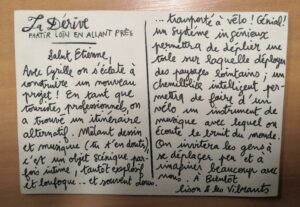 La Dérive
PARTIR LOIN EN ALLANT PRÈS
Salut Etienne,
Avec Cyrille on s'éclate à
construire un nouveau
projet ! En tant que
touristes professionnel, on
a trouvé un itinéraire
alternatif. Mêlant dessin
et musique (tu t'en doutes),
c'est un objet scénique par-
fois intime, tantôt explosif
et loufoque... et souvent doux.
... transporté à vélo ! Génial !
un système ingénieux
permettra de déplier une
toile sur laquelle déployer
des paysages lointains ; un
chemillblick intelligent per-
mettra de faire d'un
vélo un instrument de
musique avec lequel on
écoute le bruit du monde.
On invitera les gens à
se déplacer peu et à
imaginer beaucoup avec
nous. À Bientôt
Lison & les Vibrants